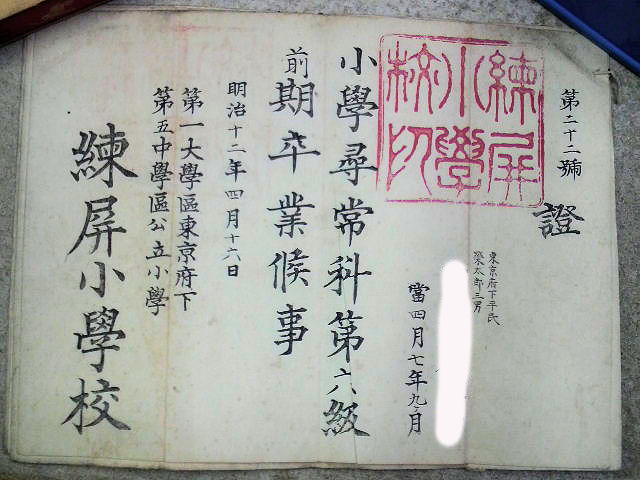 第二十二號
證
練屏
小學
校印
東京府下平民
榮太郎三男
當四月七年九ヶ月
小學尋常科第六級
前期卒業候事
明治十二年四月十六日
第一大學區東京府下
第五中學區公立小學
練屏小學校